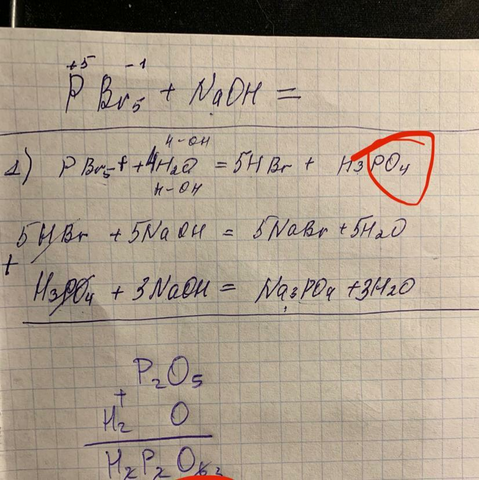 +5 -1
P Br₅ + NaOH =
H-OH
1) PBr₅ + 4H₂O = 5HBr + H₃PO₄
H-OH
5HBr + 5NaOH = 5NaBr + 5H₂O
+
H₃PO₄ + 3NaOH = Na₃PO₄ + 3H₂O
P₂O₅
+
H₂ O
H₂P₂O